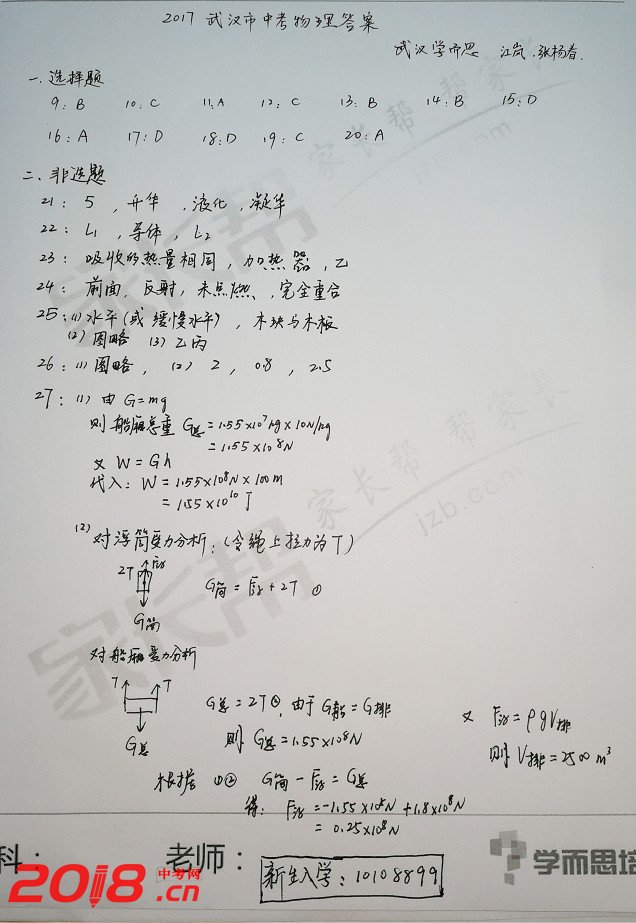 2017 武汉市中考物理答案
武汉学而思 江岚、张杨春
一、选择题
9: B 10: C 11: A 12: C 13: B 14: B 15: D
16: A 17: D 18: D 19: C 20: A
二、非选题
21: 5 , 升华 . 液化 , 凝华
22: L₁ , 导体 , L₂
23: 吸收的热量相同 , 加热器 , 乙
24: 前面, 反射, 未点燃, 完全重合
25: (1) 水平 (或缓慢水平) , 木块与木板
(2) 图略 (3) 乙丙
26: (1) 图略 , (2) 2 , 0.8 , 2.5
27: (1) 由 G=mg
则船厢总重 G总 = 1.55×10⁷kg×10N/kg
= 1.55×10⁸N
又 W=Gh
代入: W = 1.55×10⁸N×100m
= 1.55×10¹⁰J
(2) 对浮筒受力分析: (令绳上拉力为T)
2T F浮
G筒 = F浮+2T ①
G筒
对船厢受力分析
T T
G总 = 2T ②, 由于 G船=G排
又 F浮=ρgV排
G总
则 G总=1.55×10⁸N
则 V排=2500m³
根据 ①② G筒-F浮=G总
得: F浮 = -1.55×10⁸N+1.8×10⁸N
= 0.25×10⁸N
科: 老师:
新生入学: 10108899
学而思培
2018.中考网.cn
家长帮 帮家长
jzb.com
家长帮
家长帮 帮家长
jzb.com
家长帮